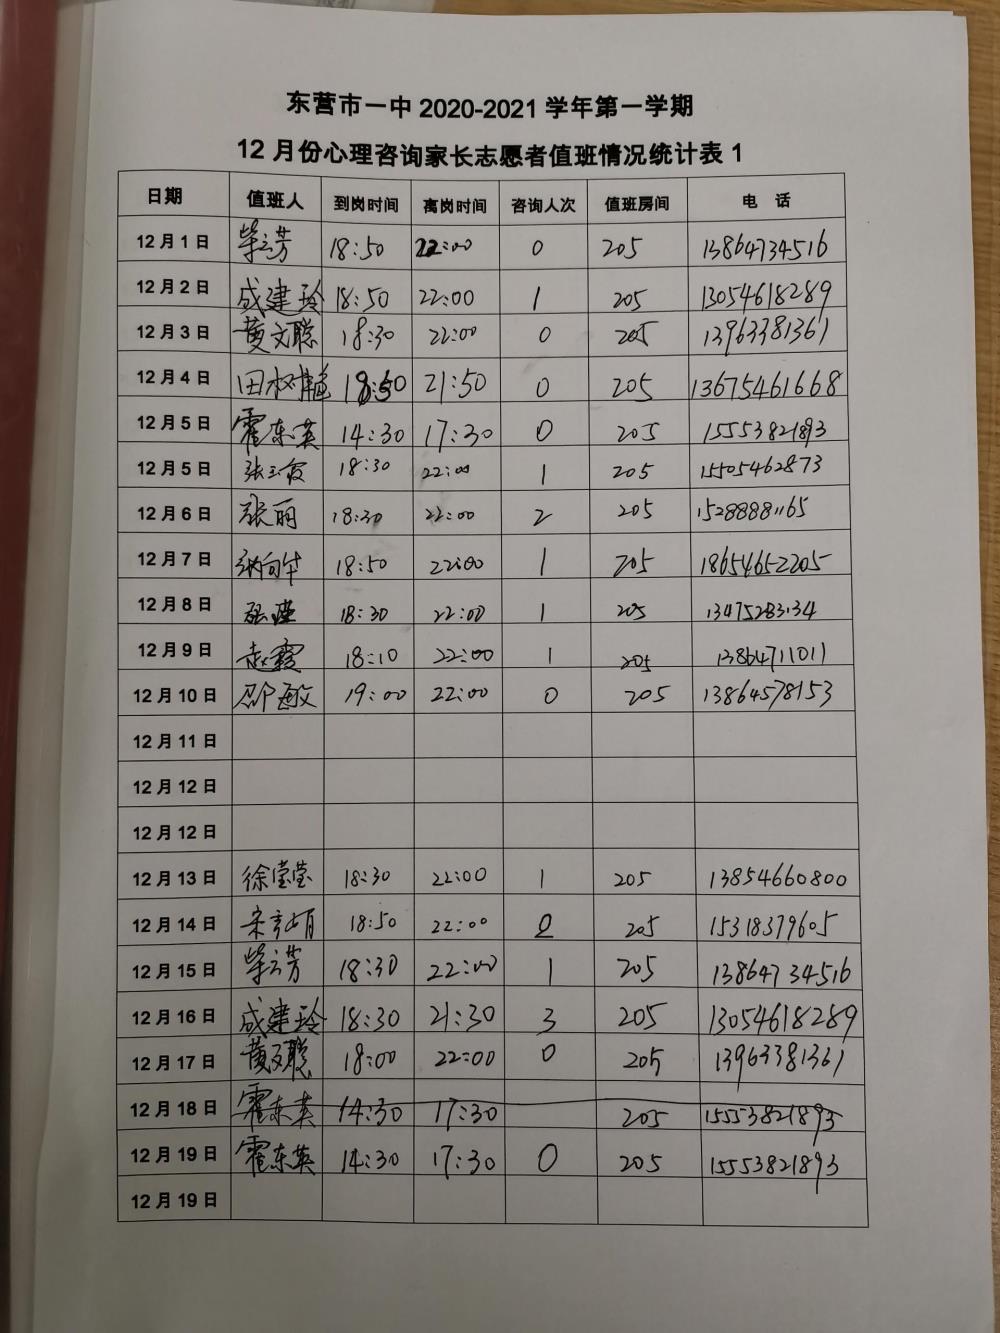 东营市一中 2020-2021 学年第一学期
12 月份心理咨询家长志愿者值班情况统计表 1
日期 值班人 到岗时间 离岗时间 咨询人次 值班房间 电 话
12 月 1 日 柴云芳 18:50 22:00 0 205 13864734516
12 月 2 日 成建玲 18:50 22:00 1 205 13054618289
12 月 3 日 黄文聪 18:30 22:00 0 205 13963381361
12 月 4 日 田树 18:50 21:50 0 205 13675461668
12 月 5 日 霍东英 14:30 17:30 0 205 15553821893
12 月 5 日 张玉霞 18:30 22:00 1 205 15505462873
12 月 6 日 张丽 18:30 22:00 2 205 15288881165
12 月 7 日 18:50 22:00 1 205 18654652205
12 月 8 日 18:30 22:00 1 205 13475283134
12 月 9 日 赵霞 18:10 22:00 1 205 13864711011
12 月 10 日 邵敏 19:00 22:00 0 205 13864578153
12 月 11 日
12 月 12 日
12 月 12 日
12 月 13 日 徐莹莹 18:30 22:00 1 205 13854660800
12 月 14 日 宋 18:50 22:00 0 205 15318379605
12 月 15 日 柴云芳 18:30 22:00 1 205 13864734516
12 月 16 日 成建玲 18:30 21:30 3 205 13054618289
12 月 17 日 黄文聪 18:00 22:00 0 205 13963381361
12 月 18 日 霍东英 14:30 17:30 205 15553821893
12 月 19 日 霍东英 14:30 17:30 0 205 15553821893
12 月 19 日